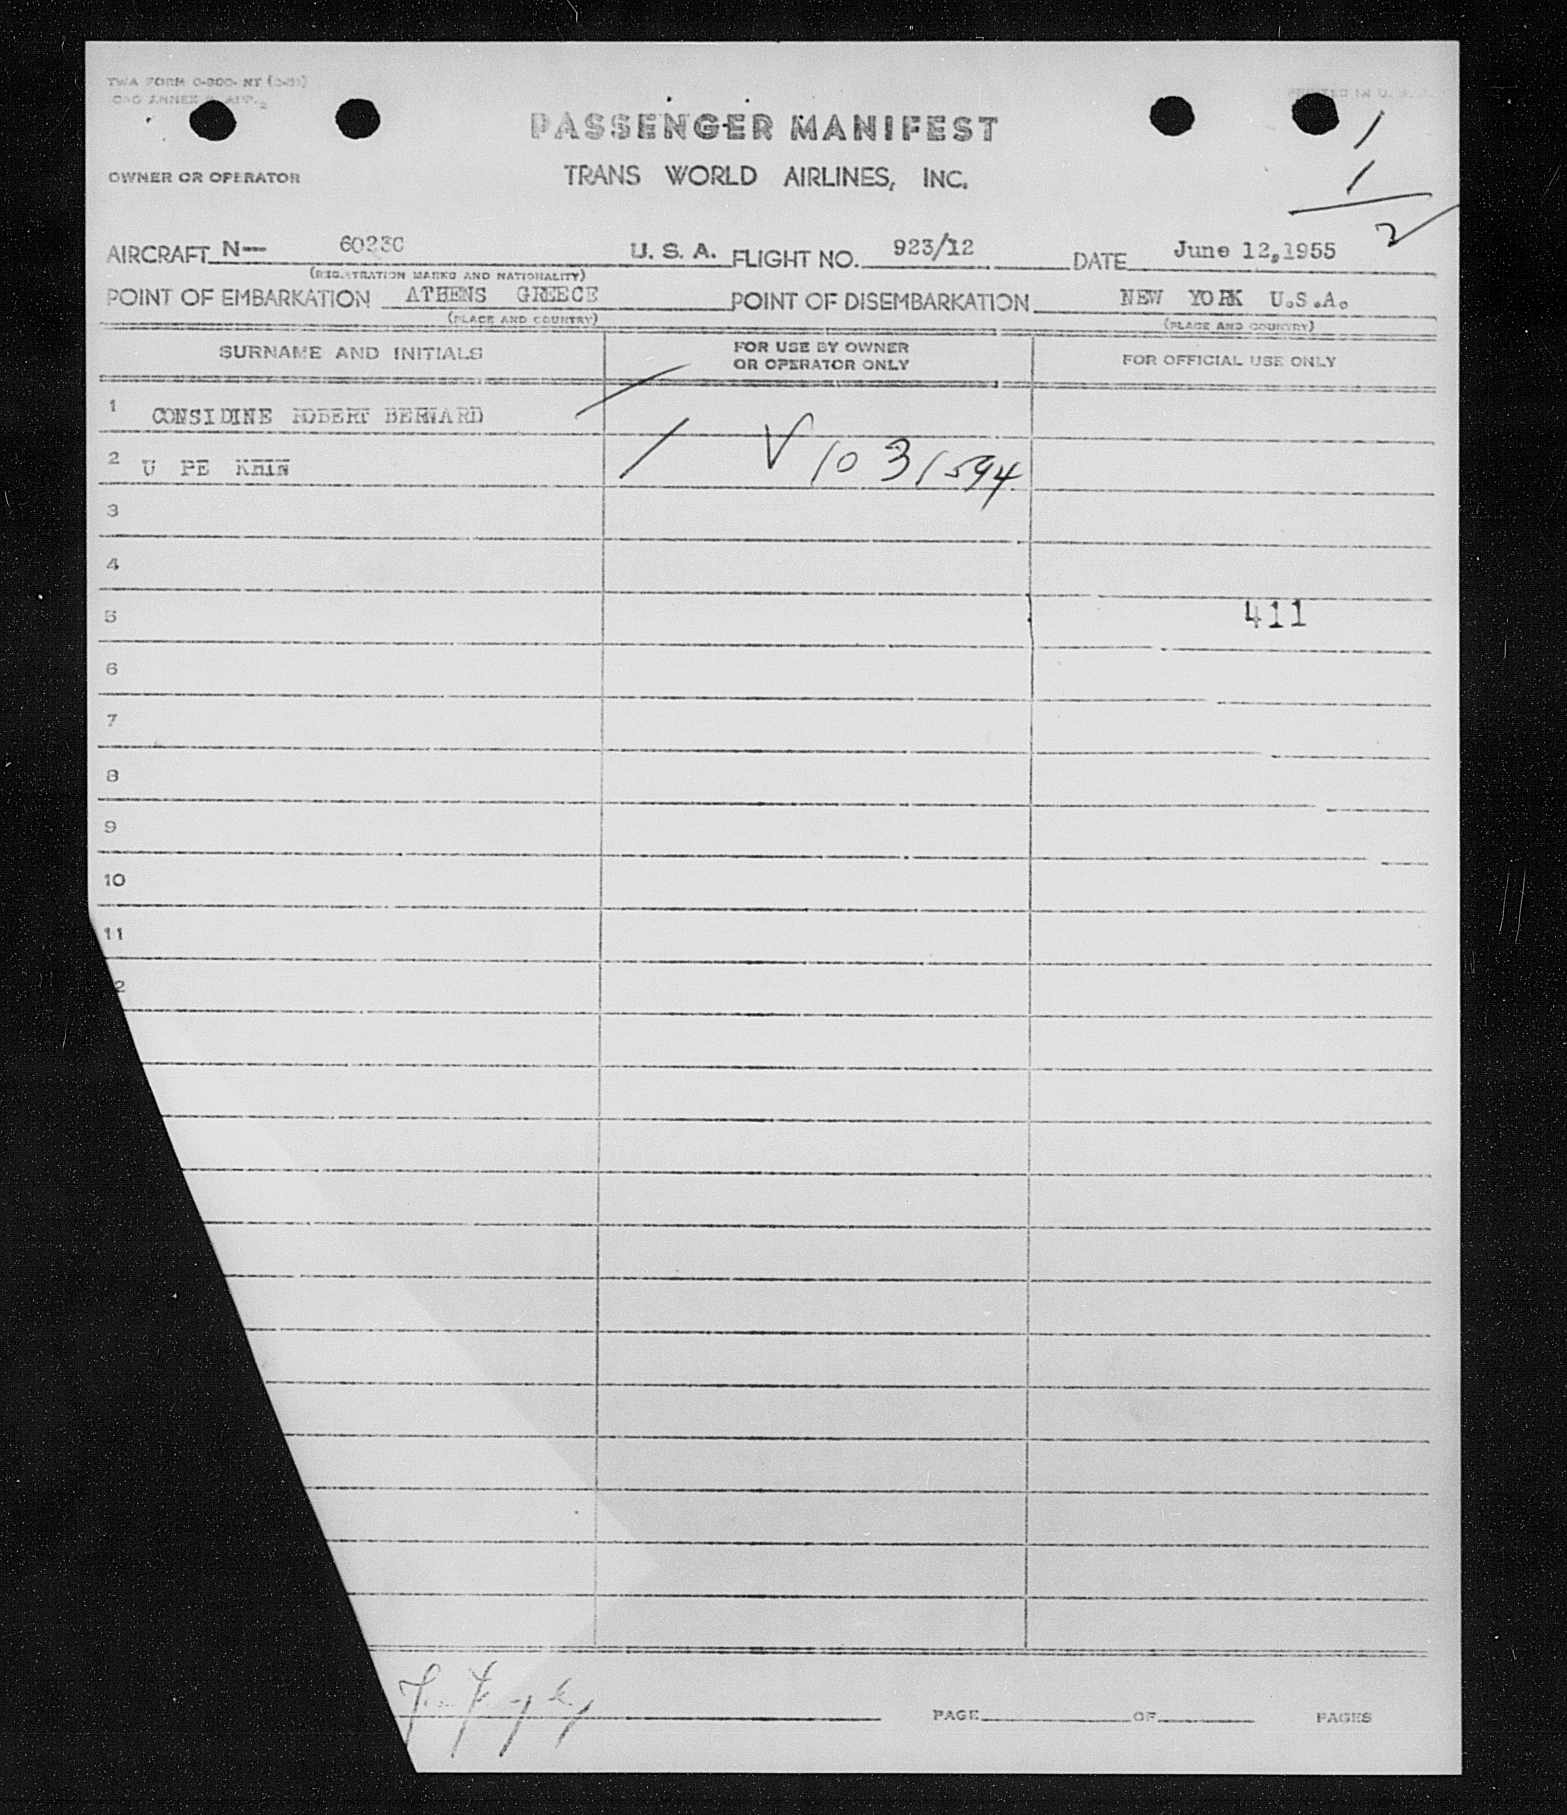 TWA FORM
PASSENGER MANIFEST
TRANS WORLD AIRLINES, INC.
OWNER OR OPERATOR
1
1
2
AIRCRAFT N— 6023C U. S. A. FLIGHT NO. 923/12 DATE June 12,1955
(REGISTRATION MARKS AND NATIONALITY)
POINT OF EMBARKATION ATHENS GREECE POINT OF DISEMBARKATION NEW YORK U.S.A.
(PLACE AND COUNTRY) (PLACE AND COUNTRY)
SURNAME AND INITIALS FOR USE BY OWNER OR OPERATOR ONLY FOR OFFICIAL USE ONLY
1 CONSIDINE ROBERT BERNARD /
2 U PE KHIN / V 1031594
3
4
5 411
6
7
8
9
10
11
2
PAGE OF PAGES